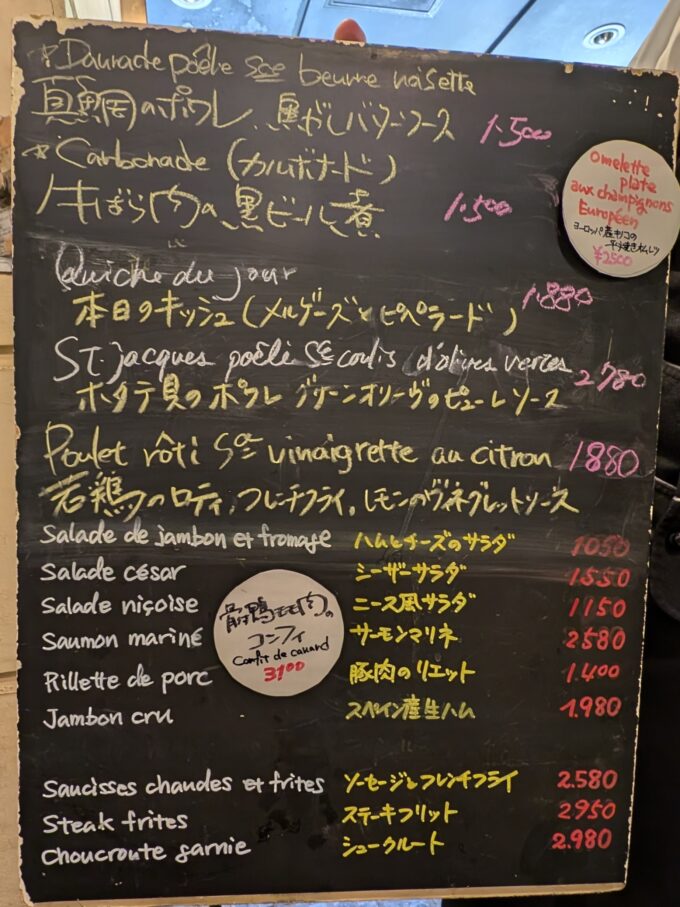 *Daurade poêle sce beurre noisette
真鯛のポワレ、黒がしバターソース 1.500
*Carbonade (カルボナード)
牛ばら肉の黒ビール煮 1.500
Omelette
plate
aux champignons
Européen
ヨーロッパ産キノコの
平焼きオムレツ
¥2500
Quiche du jour
本日のキッシュ(メルゲーズとピペラード) 1.880
St. jacques poêlé sce coulis d'olives vertes
ホタテ貝のポワレ グリーンオリーヴのピューレソース 2780
Poulet rôti sce vinaigrette au citron 1880
若鶏のロティ、フレンチフライ、レモンのヴィネグレットソース
Salade de jambon et fromage ハムとチーズのサラダ 1050
Salade césar シーザーサラダ 1550
Salade niçoise ニース風サラダ 1150
Saumon mariné サーモンマリネ 2580
Rillette de porc 豚肉のリエット 1.400
Jambon cru スペイン産生ハム 1.980
骨付鴨モモ肉の
コンフィ
Confit de canard
3100
Saucisses chaudes et frites ソーセージとフレンチフライ 2.580
Steak frites ステーキフリット 2950
Choucroute garnie シュークルート 2.980